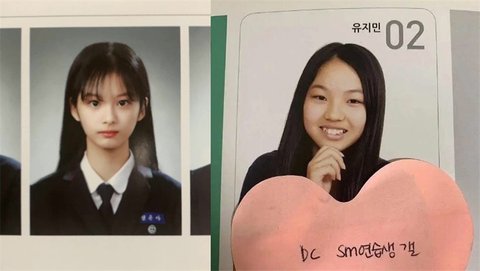 유지민 02
DC sm연습생 갤